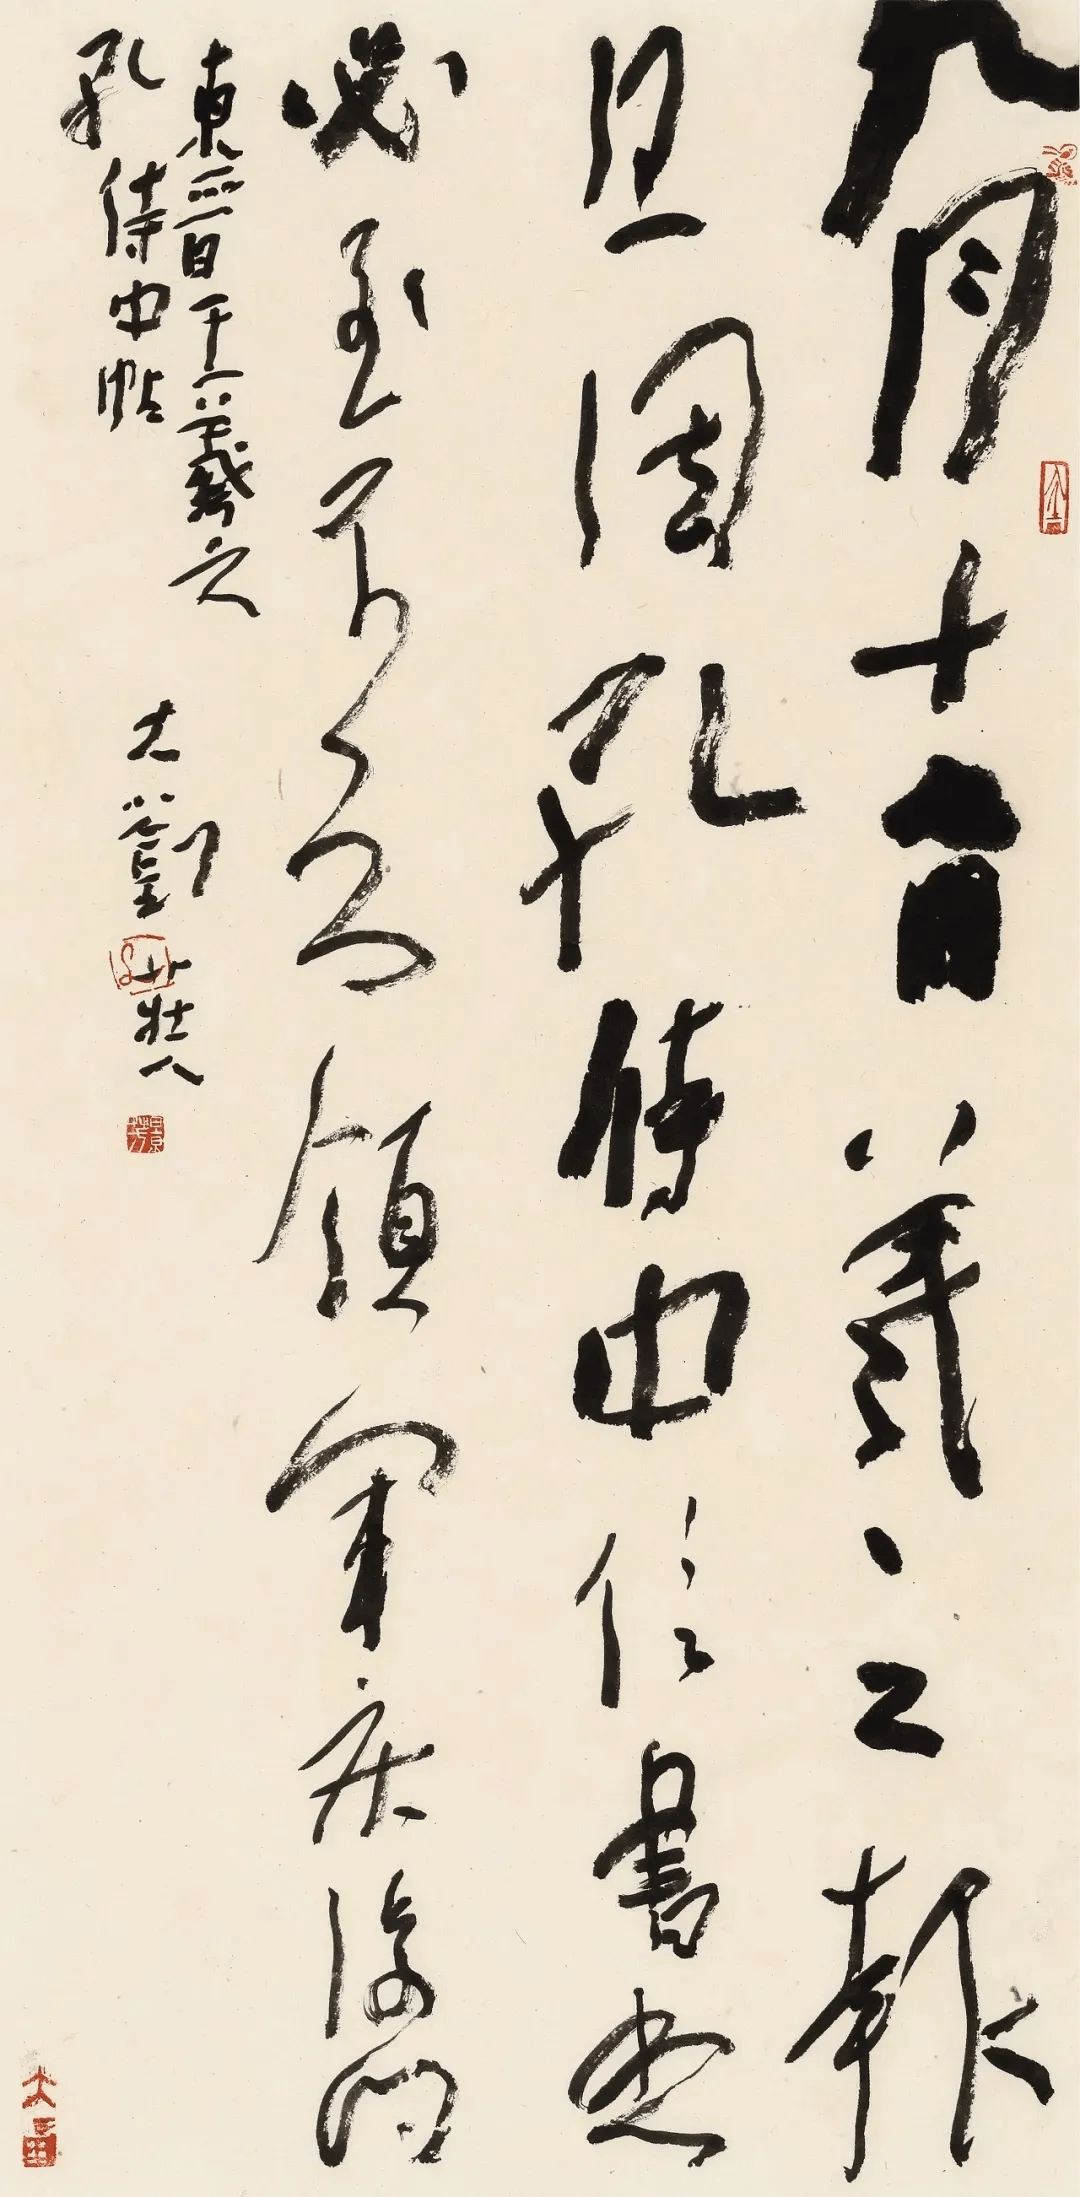 九月十七日羲之報
且因孔侍中信書想
必至不知領軍疾後問
東晉王羲之
孔侍中帖
劉